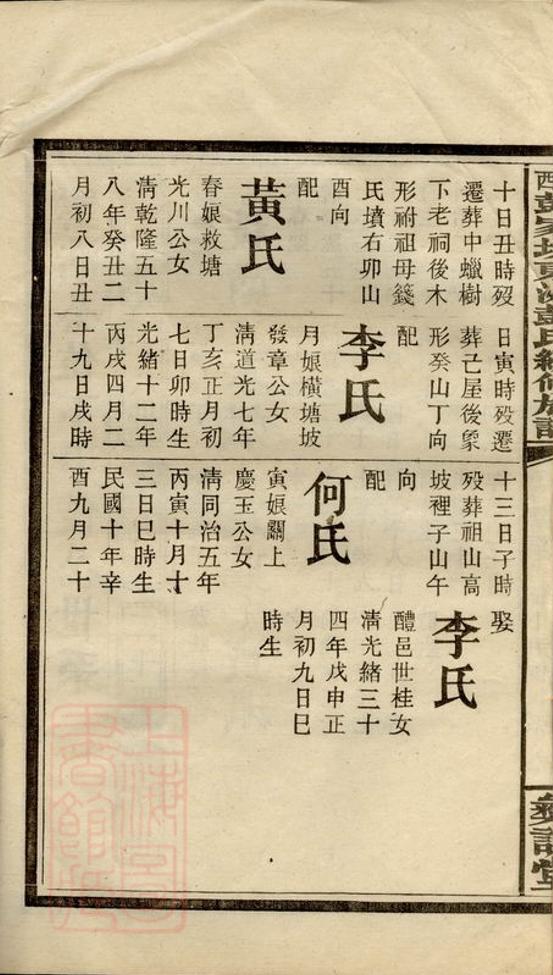 十日丑時歿
遷葬中蠟樹
下老祠後木
形祔祖母籛
氏墳右卯山
酉向
配
黃氏
春娘救塘
光川公女
清乾隆五十
八年癸丑二
月初八日丑
日寅時歿遷
葬亡屋後象
形癸山丁向
配
李氏
月娘橫塘坡
發章公女
清道光七年
丁亥正月初
七日卯時生
光緒十二年
丙戌四月二
十九日戌時
十三日子時
歿葬祖山高
坡裡子山午
向
配
何氏
寅娘關上
慶玉公女
清同治五年
丙寅十月十
三日巳時生
民國十年辛
酉九月二十
娶
李氏
醴邑世桂女
清光緒三十
四年戊申正
月初九日巳
時生
上海圖
書館藏